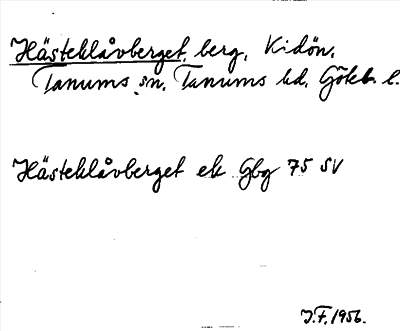 Hästeklåvberget, berg, Kidön,
Tanums sn, Tanums hd, Göteb. l.
Hästeklåvberget ek Gbg 75 SV
J.F. 1956.